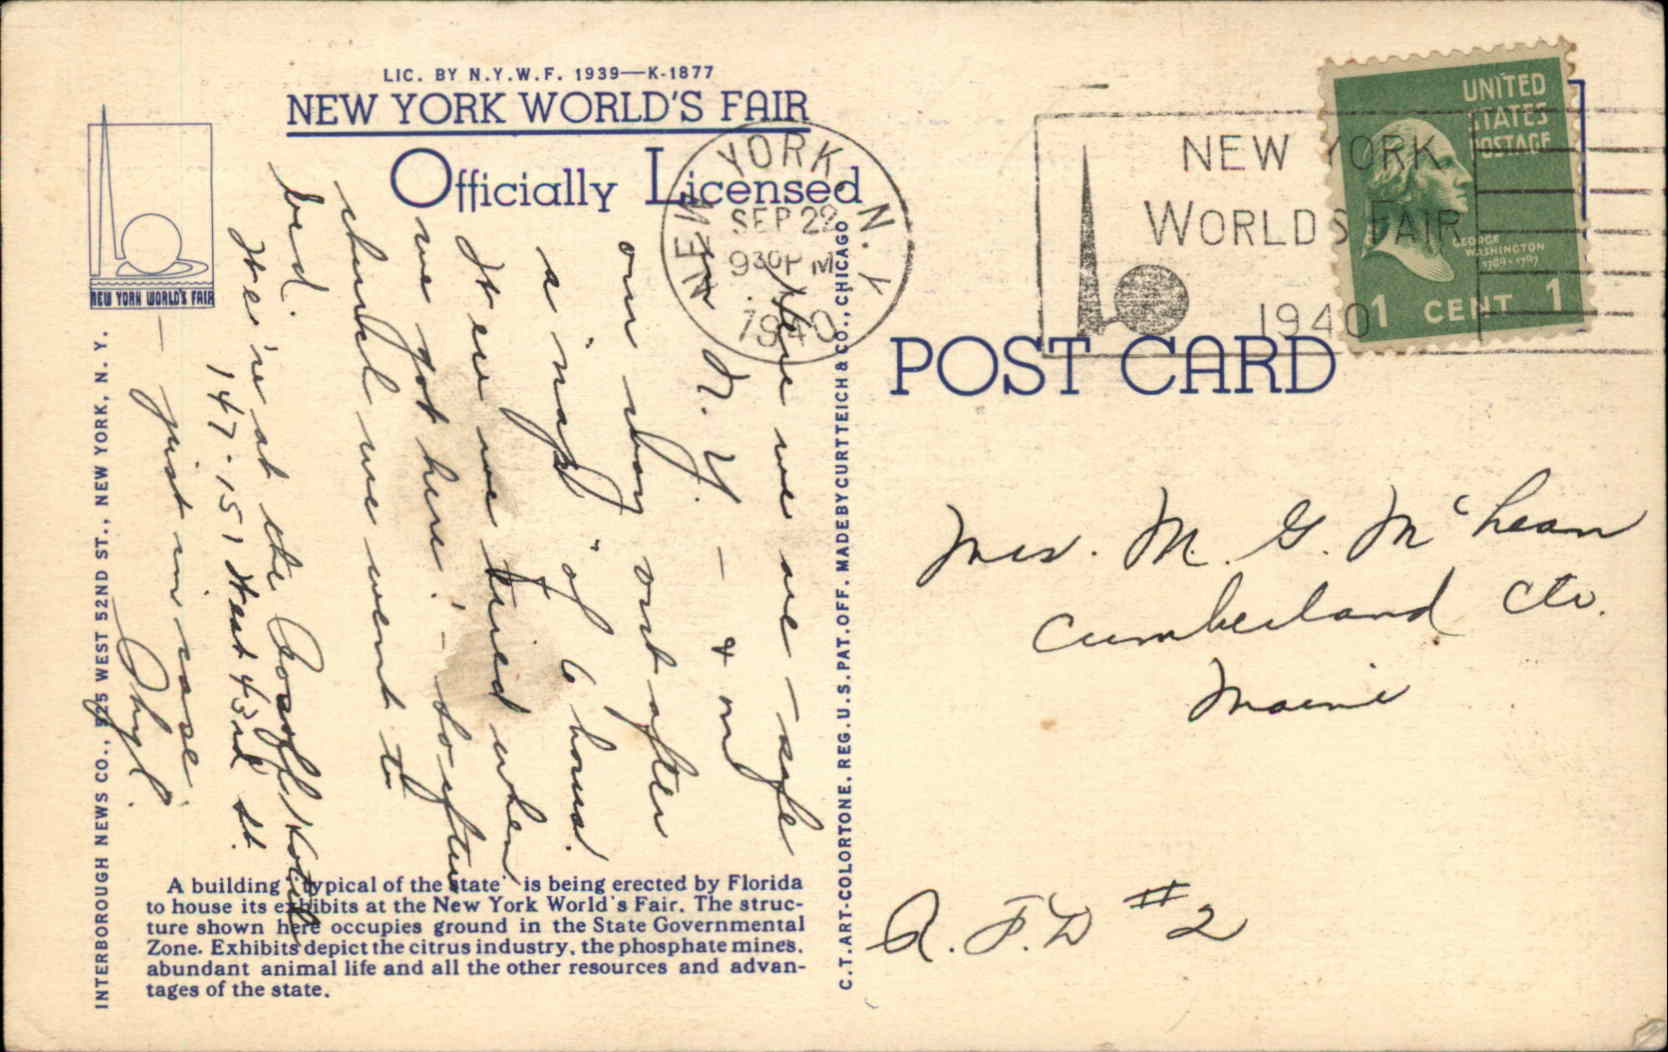 LIC. BY N.Y.W.F. 1939—K-1877
NEW YORK WORLD'S FAIR
Officially Licensed
NEW YORK WORLD'S FAIR
NEW YORK, N.Y.
SEP 22
9 30 P M
1940
NEW YORK
WORLD'S FAIR
1940
UNITED
STATES
POSTAGE
GEORGE
WASHINGTON
1789-1797
1 CENT 1
POST CARD
Here we are - safe
in N. Y. — & on
our way out after
a "nap" of 6 hours.
It ew we tired when
we got here! - So after
church we went to
bed
We're at the Hotel
147-151 West 43rd St.
— just in case.
Phyl.
Mrs. M. G. McLean
Cumberland Ctr.
Maine
R.F.D #2
A building "typical of the state" is being erected by Florida
to house its exhibits at the New York World's Fair. The struc-
ture shown here occupies ground in the State Governmental
Zone. Exhibits depict the citrus industry, the phosphate mines,
abundant animal life and all the other resources and advan-
tages of the state.
INTERBOROUGH NEWS CO., 525 WEST 52ND ST., NEW YORK, N. Y.
C.T. ART-COLORTONE. REG. U.S. PAT. OFF. MADE BY CURT TEICH & CO., CHICAGO